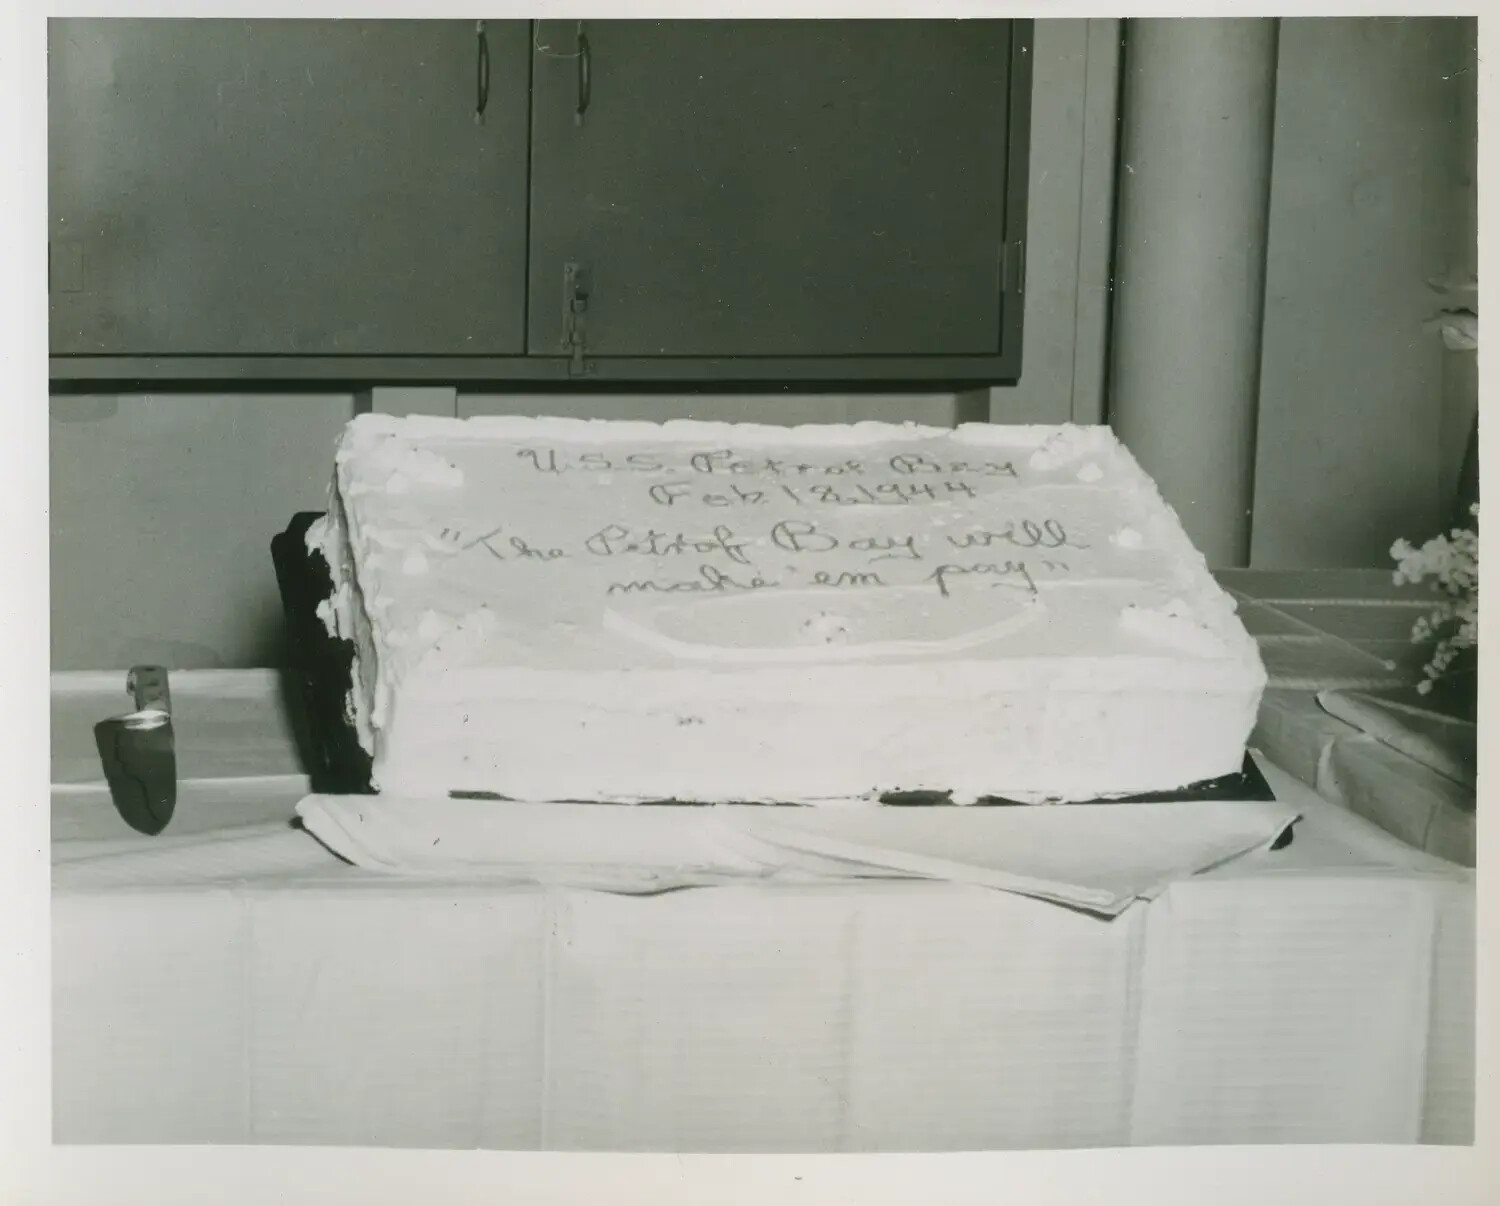 U.S.S. Petrof Bay
Feb 18, 1944
"The Petrof Bay will
make 'em pay"